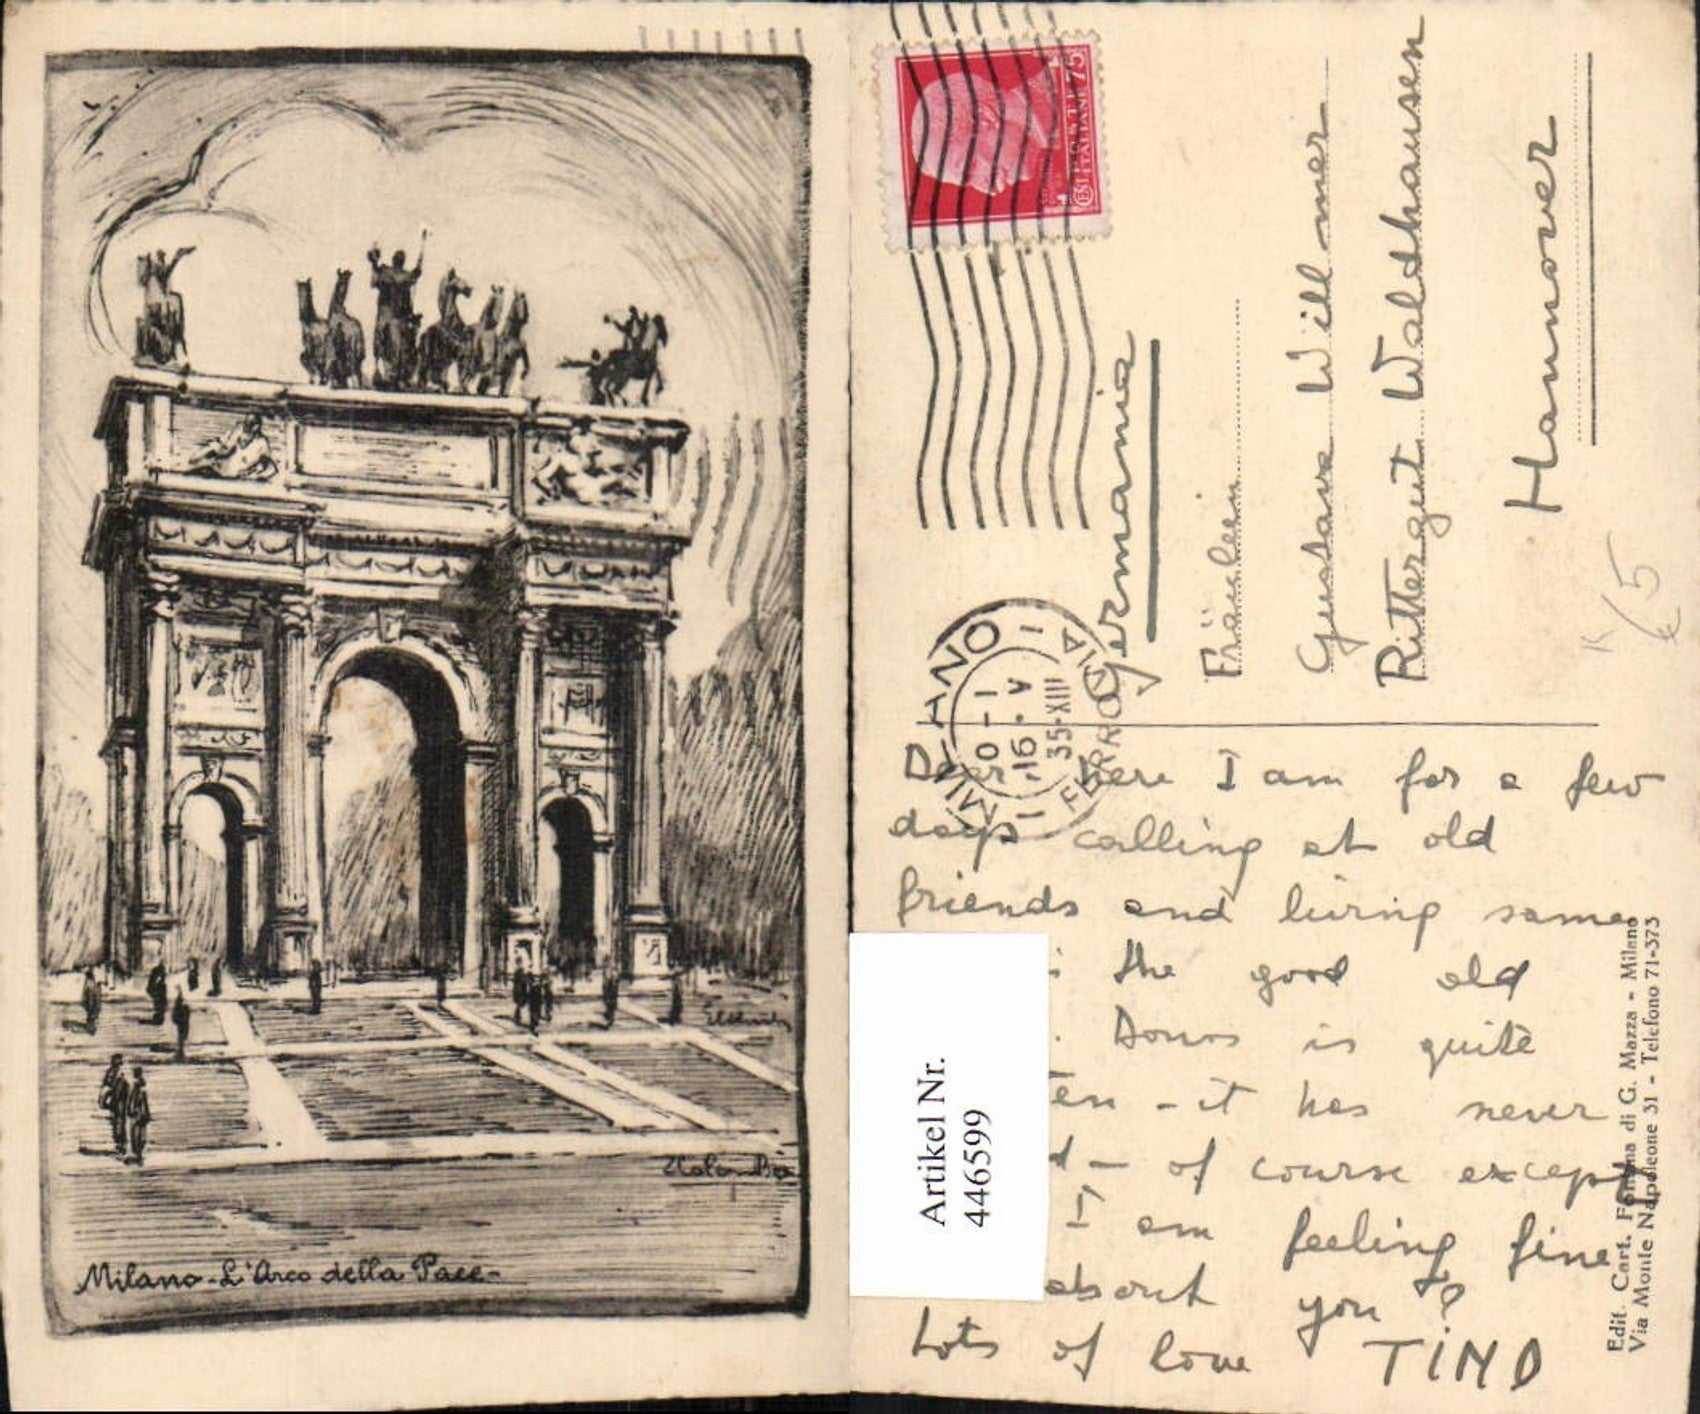 Milano - L'Arco della Pace -
POSTE ITALIANE 75
MILANO
FERROVIA
10-1
16.V
35-XIII
Germania
Fräulein
Gustava Willmer
Rittergut Waldthausen
Hannover
K
€ 5
Dear, Here I am for a few
days calling at old
friends and living some
the good old
is quite
en - it has never
d - of course except
I am feeling fine
about you?
Lots of love TINO
Artikel Nr.
446599
Edit. Cart. Fontana di G. Mazza - Milano
Via Monte Napoleone 31 - Telefono 71-373